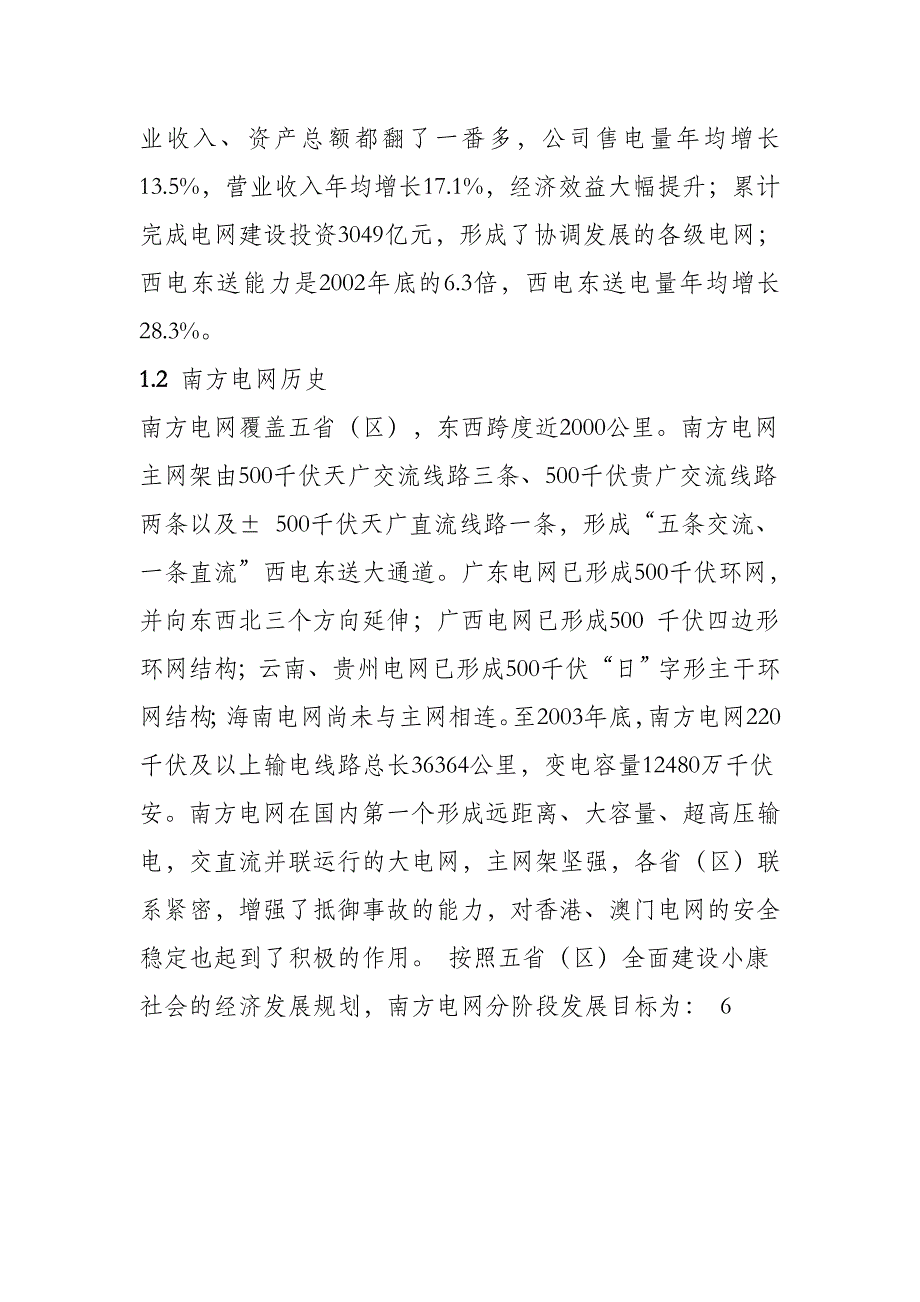 业收入、资产总额都翻了一番多，公司售电量年均增长
13.5%，营业收入年均增长17.1%，经济效益大幅提升；累计
完成电网建设投资3049亿元，形成了协调发展的各级电网；
西电东送能力是2002年底的6.3倍，西电东送电量年均增长
28.3%。
1.2 南方电网历史
南方电网覆盖五省（区），东西跨度近2000公里。南方电网
主网架由500千伏天广交流线路三条、500千伏贵广交流线路
两条以及± 500千伏天广直流线路一条，形成“五条交流、
一条直流”西电东送大通道。广东电网已形成500千伏环网，
并向东西北三个方向延伸；广西电网已形成500 千伏四边形
环网结构；云南、贵州电网已形成500千伏“日”字形主干环
网结构；海南电网尚未与主网相连。至2003年底，南方电网220
千伏及以上输电线路总长36364公里，变电容量12480万千伏
安。南方电网在国内第一个形成远距离、大容量、超高压输
电，交直流并联运行的大电网，主网架坚强，各省（区）联
系紧密，增强了抵御事故的能力，对香港、澳门电网的安全
稳定也起到了积极的作用。 按照五省（区）全面建设小康
社会的经济发展规划，南方电网分阶段发展目标为： 6